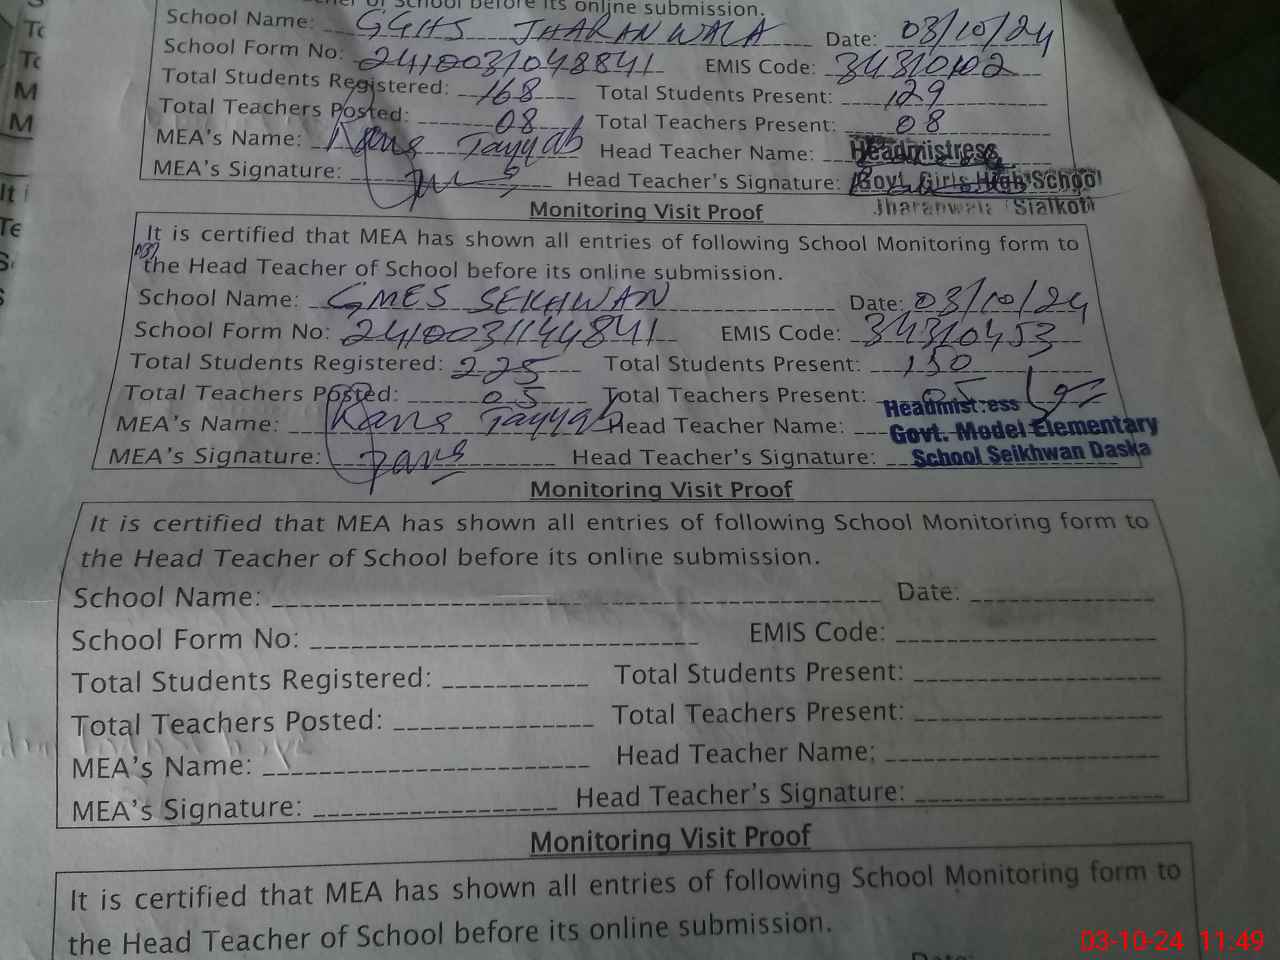 of School before its online submission.
School Name: GGHS JHARANWALA Date: 03/10/24
School Form No: 2410031048841 EMIS Code: 34310102
Total Students Registered: 168 Total Students Present: 129
Total Teachers Posted: 08 Total Teachers Present: 08
MEA's Name: Rana Tayyab Head Teacher Name: Headmistress
MEA's Signature: Head Teacher's Signature: Govt. Girls High School
Jharanwala Sialkot
Monitoring Visit Proof
It is certified that MEA has shown all entries of following School Monitoring form to
the Head Teacher of School before its online submission.
School Name: GMES SEKHWAN Date: 03/10/24
School Form No: 2410031144841 EMIS Code: 34310453
Total Students Registered: 225 Total Students Present: 150
Total Teachers Posted: 05 Total Teachers Present: 05
MEA's Name: Rana Tayyab Head Teacher Name: Headmistress
Govt. Model Elementary
MEA's Signature: Rana Head Teacher's Signature: School Seikhwan Daska
Monitoring Visit Proof
It is certified that MEA has shown all entries of following School Monitoring form to
the Head Teacher of School before its online submission.
School Name: Date:
School Form No: EMIS Code:
Total Students Registered: Total Students Present:
Total Teachers Posted: Total Teachers Present:
MEA's Name: Head Teacher Name:
MEA's Signature: Head Teacher's Signature:
Monitoring Visit Proof
It is certified that MEA has shown all entries of following School Monitoring form to
the Head Teacher of School before its online submission.
Date:
03-10-24 11:49